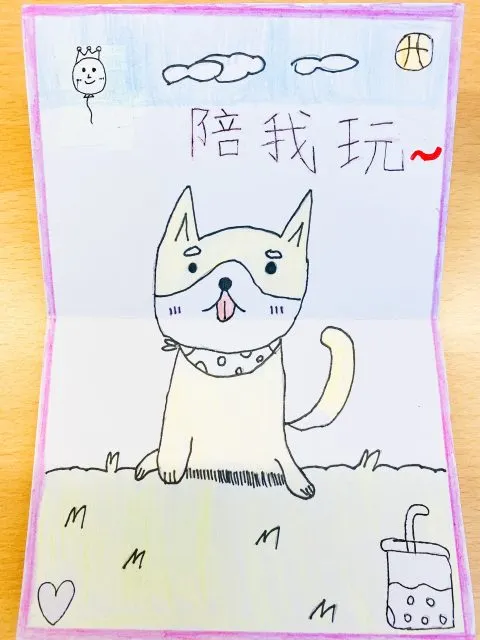 陪我玩~